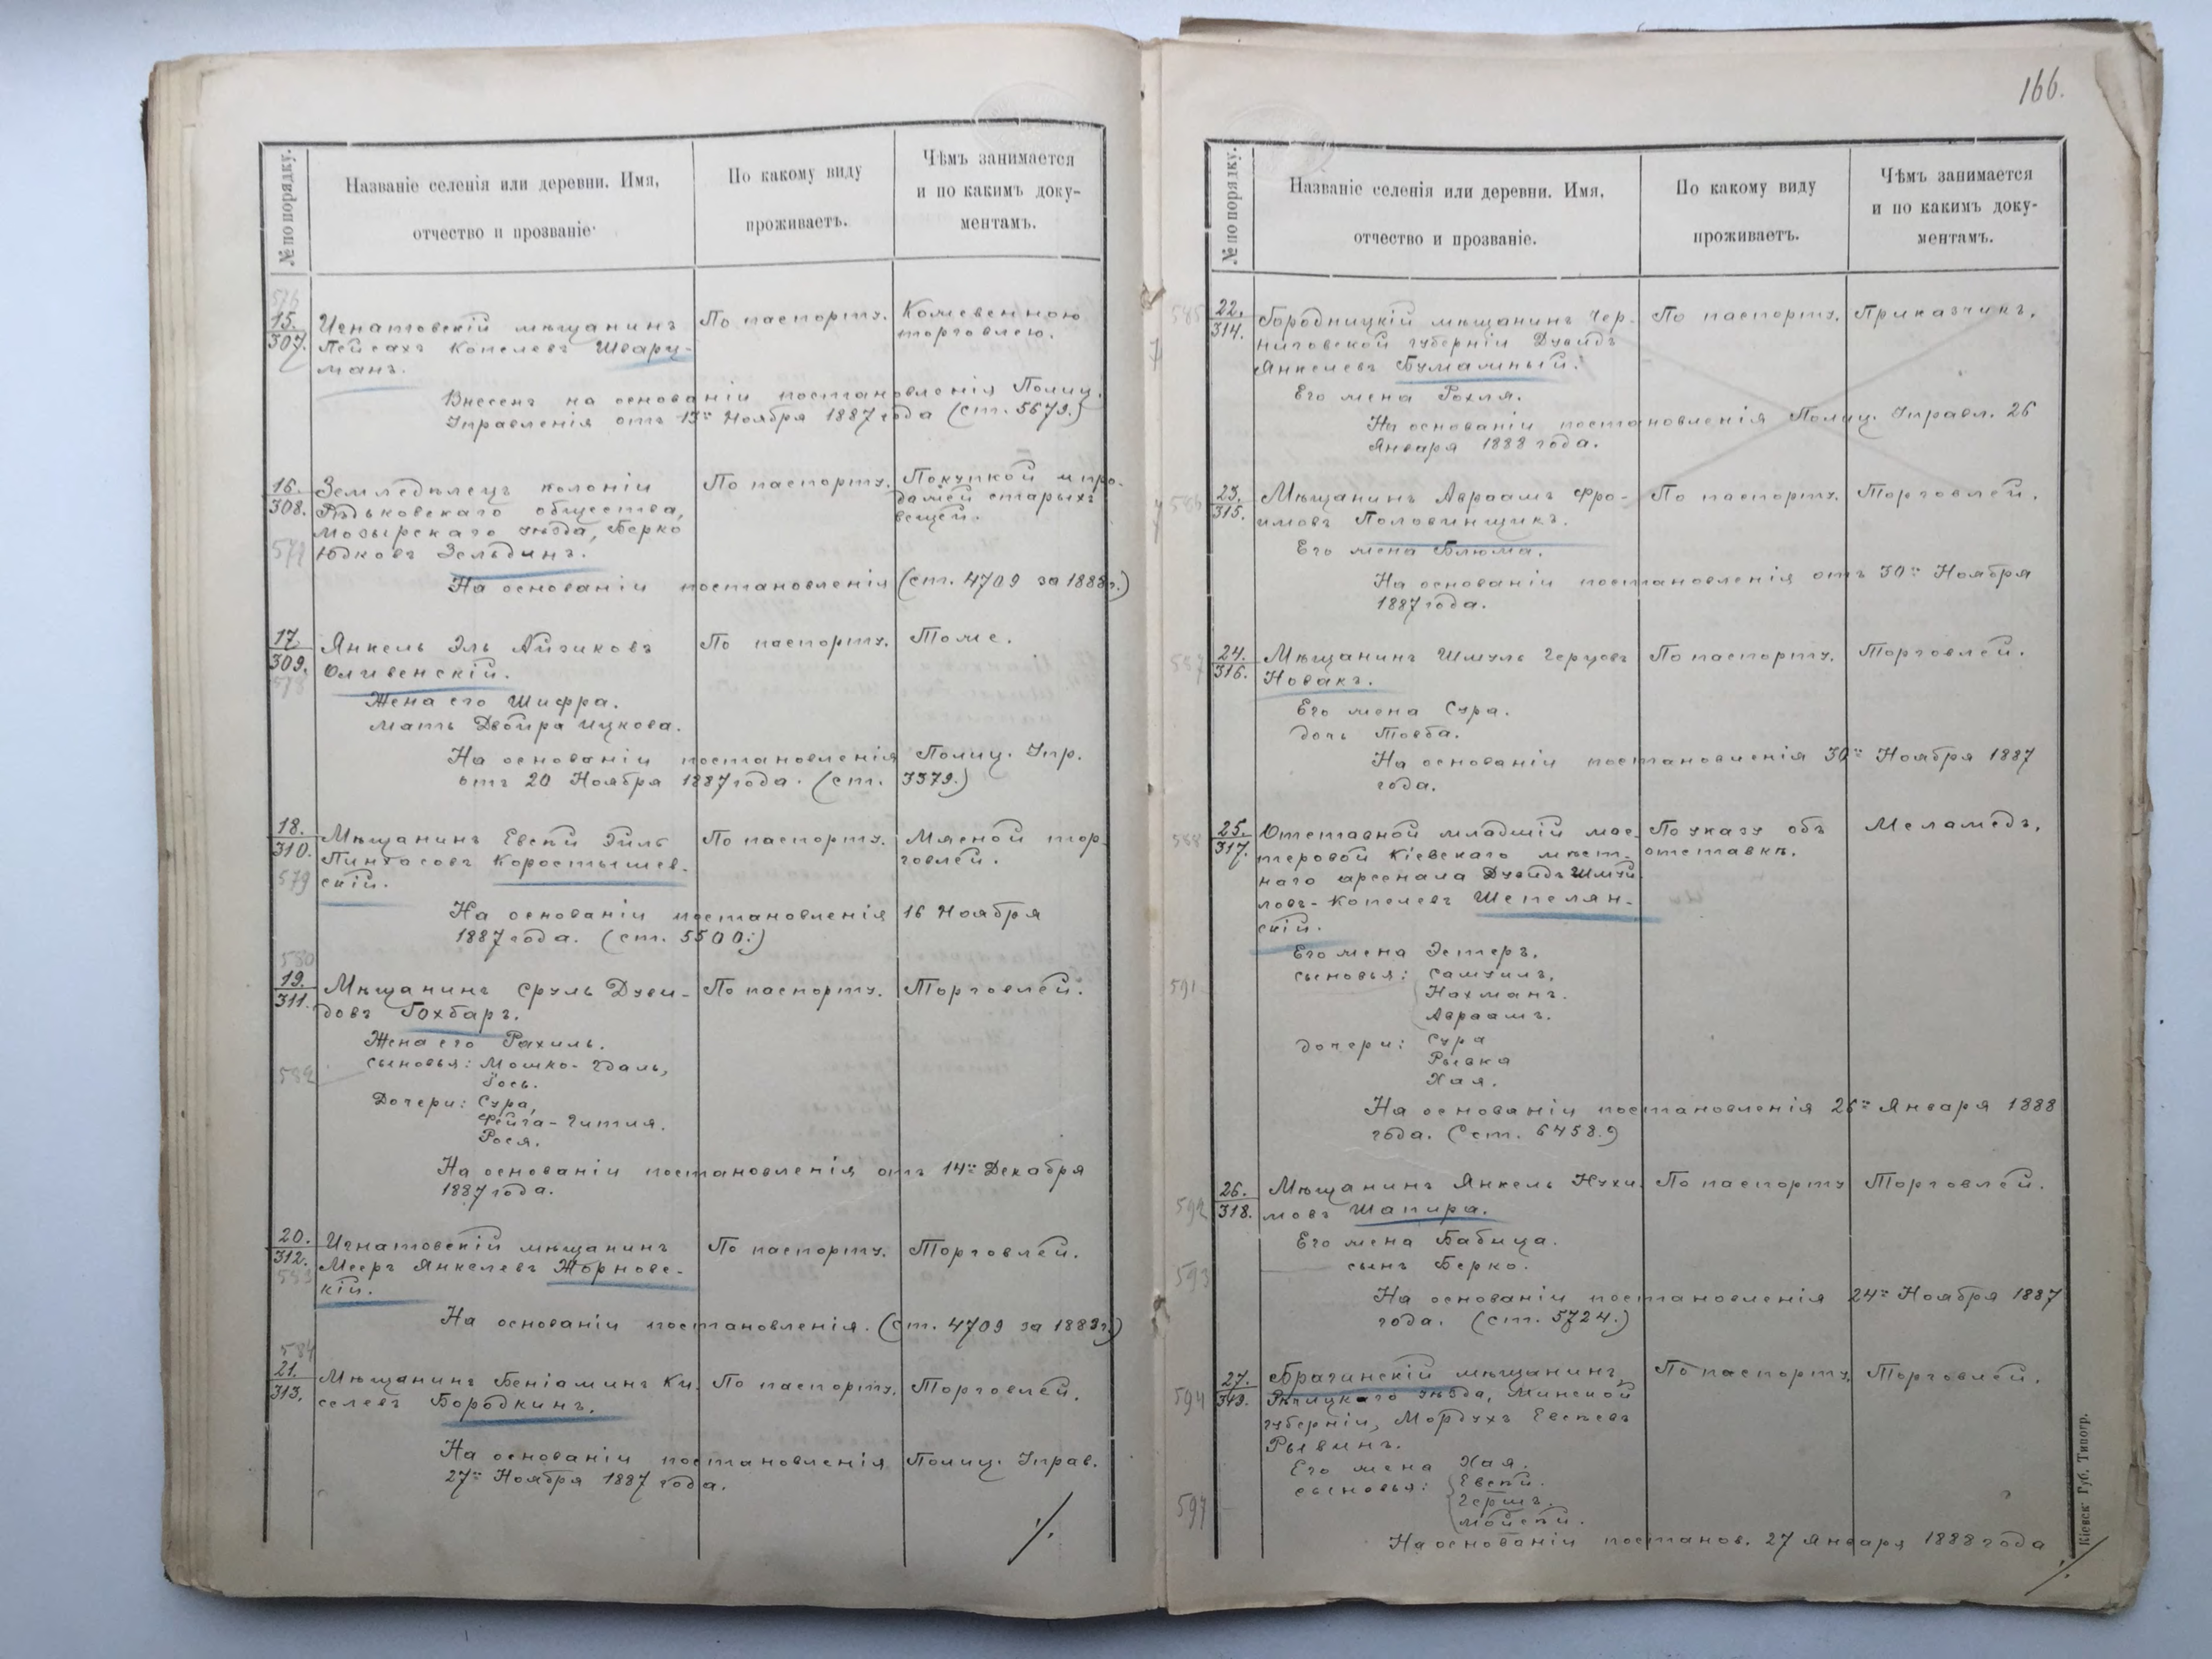 № по порядку.
Названіе селенія или деревни. Имя,
отчество и прозваніе.
По какому виду
проживаетъ.
Чѣмъ занимается
и по какимъ доку-
ментамъ.
576
15.
307.
Игнатовскій мѣщанинъ
Пейсахъ Копелевъ Шварц-
манъ.
По паспорту.
Кожевенною
торговлею.
Внесенъ на основаніи постановленія Полиц.
Управленія отъ 13го Ноября 1887 года (ст. 5679.)
16.
308.
577
Земледѣлецъ колоніи
Рѣдьковскаго общества,
Мозырскаго уѣзда, Берко
Юдковъ Зельдинъ.
По паспорту.
Покупкой и про-
дажей старыхъ
вещей.
На основаніи постановленія (ст. 4709 за 1888 г.)
17.
309.
578
Янкель Эль Айзиковъ
Оливенскій.
По паспорту.
Тоже.
Жена его Шифра.
Мать Двойра Ицкова.
На основаніи постановленія Полиц. Упр.
отъ 20 Ноября 1887 года. (ст. 3379.)
18.
310.
579
Мѣщанинъ Евсѣй Эйль
Пинхасовъ Коростышев-
скій.
По паспорту.
Мясной тор-
говлей.
На основаніи постановленія 16 Ноября
1887 года. (ст. 5500.)
580
19.
311.
Мѣщанинъ Сруль Дуви-
довъ Гохбаръ.
По паспорту.
Торговлей.
Жена его Рахиль.
582
Сыновья: Мошко-Гдаль,
Іось.
Дочери: Сура,
Фейга-Гитля.
Рося.
На основаніи постановленія отъ 14го Декабря
1887 года.
20.
312.
583
Игнатовскій мѣщанинъ
Мееръ Янкелевъ Жорновс-
кій.
По паспорту.
Торговлей.
На основаніи постановленія. (ст. 4709 за 1888 г.)
584
21.
313.
Мѣщанинъ Беніаминъ Ки-
селевъ Бородкинъ.
По паспорту.
Торговлей.
На основаніи постановленія Полиц. Управ.
27го Ноября 1887 года.
166.
№ по порядку.
Названіе селенія или деревни. Имя,
отчество и прозваніе.
По какому виду
проживаетъ.
Чѣмъ занимается
и по какимъ доку-
ментамъ.
585
22.
314.
Городницкій мѣщанинъ Чер-
ниговской губерніи Дувидъ
Янкелевъ Бумажный.
По паспорту.
Приказчикъ.
Его жена Рохля.
На основаніи постановленія Полиц. Управл. 26
Января 1888 года.
586
23.
315.
Мѣщанинъ Авраамъ Фро-
имовъ Половинщикъ.
По паспорту.
Торговлей.
Его жена Блюма.
На основаніи постановленія отъ 30го Ноября
1887 года.
587
24.
316.
Мѣщанинъ Шмуль Герцовъ
Новакъ.
По паспорту.
Торговлей.
Его жена Сура.
дочь Товба.
На основаніи постановленія 30го Ноября 1887
года.
588
25.
317.
Отставной младшій мас-
теровой Кіевскаго мѣст-
наго арсенала Дувидъ Шмуй-
ловъ-Копелевъ Шепелян-
скій.
По указу объ
отставкѣ.
Меламедъ.
Его жена Эстеръ.
591
сыновья: Самуилъ,
Нахманъ.
Авраамъ.
дочери: Сура
Рывка
Хая.
На основаніи постановленія 26го Января 1888
года. (ст. 6458.)
592
26.
318.
Мѣщанинъ Янкель Нухи-
мовъ Шапира.
По паспорту
Торговлей.
Его жена Бабица.
593
сынъ Берко.
На основаніи постановленія 24го Ноября 1887
года. (ст. 5724.)
594
27.
319.
Брагинскій мѣщанинъ,
Рѣчицкаго уѣзда, Минской
губерніи, Мордухъ Евсѣевъ
Рывинъ.
По паспорту.
Торговлей.
Его жена Хая.
597
сыновья: Евсѣй.
Гершъ.
Мойсѣй.
На основаніи постанов. 27 Января 1888 года
Кіевск. Губ. Типогр.